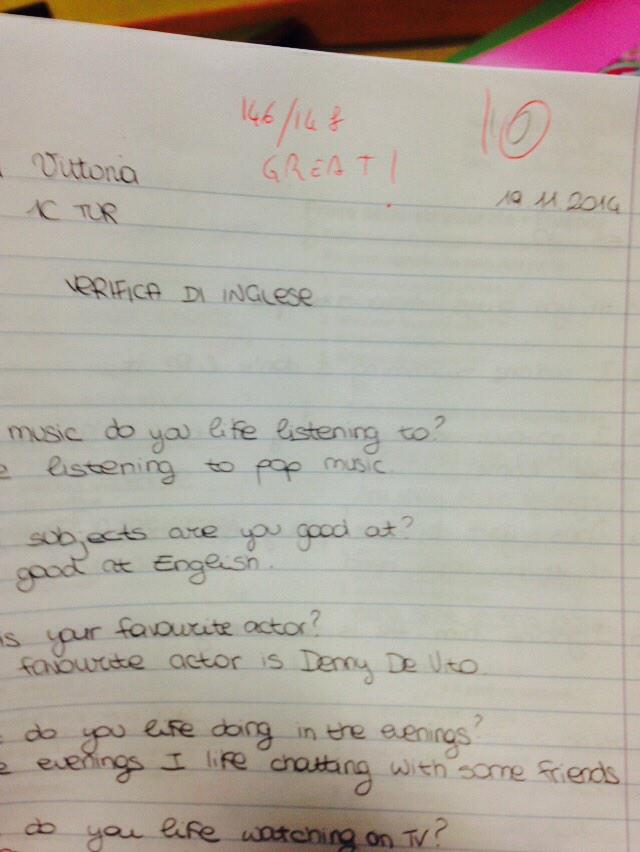 146/148 10
GREAT!
Vittoria 19 11 2014
1C TUR
VERIFICA DI INGLESE
music do you like listening to?
e listening to pop music.
subjects are you good at?
good at English.
is your favourite actor?
favourite actor is Denny De Vito.
do you like doing in the evenings?
e evenings I like chatting with some friends
do you like watching on TV?